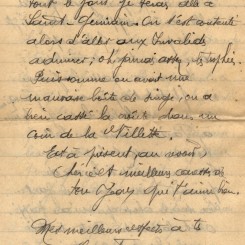 tout le jour, je serais allé à
Saint-Germain. On s'est contenté
alors d'aller aux Invalides
admirer; oh! jamais assez, les trophées.
Puis comme on avait une
mauvaise boîte de singe, on a
bien cassé la croûte dans un
coin de la Villette.
Et à présent, au revoir,
Chérie et meilleurs
ton Jean qui t'aime bien.
Mes meilleurs respects à ta